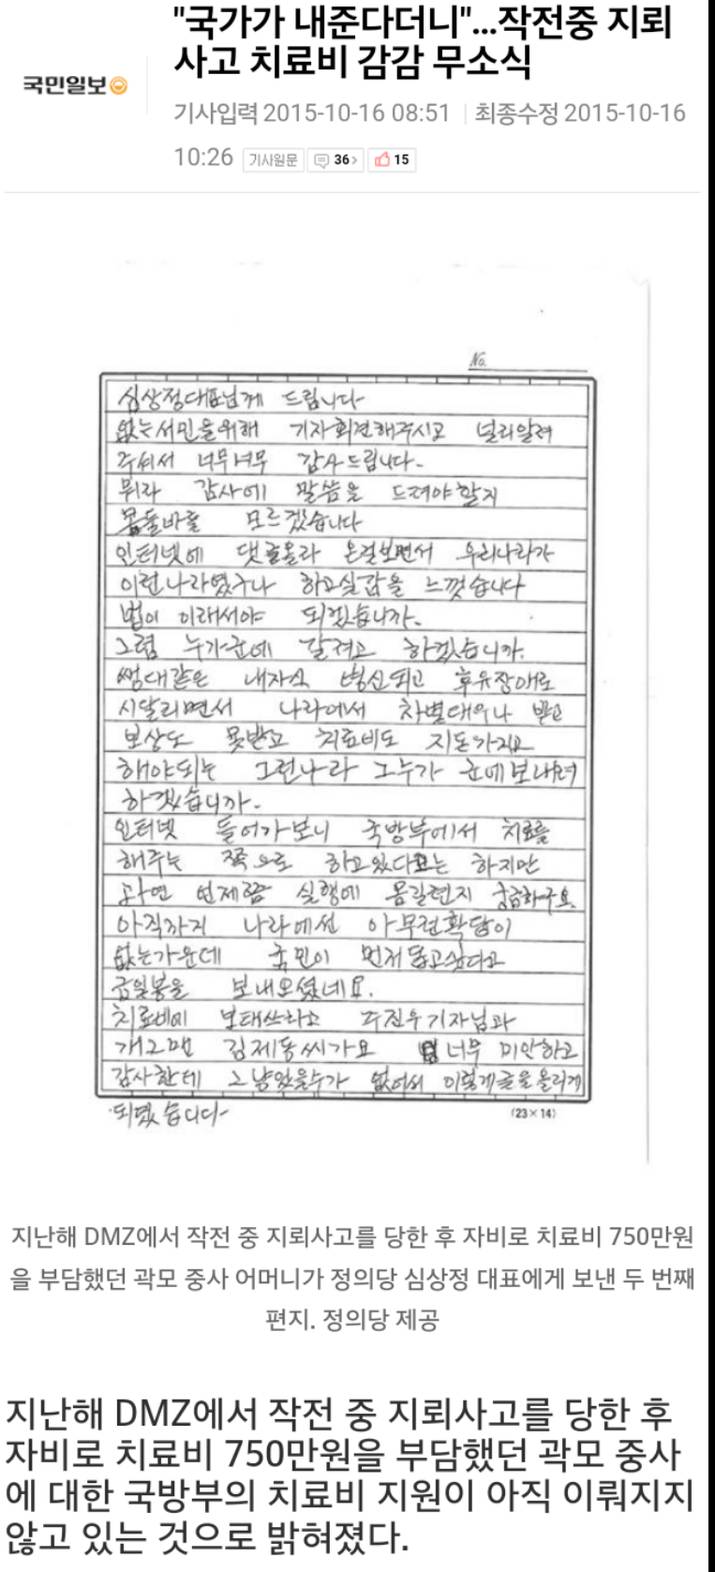 "국가가 내준다더니"...작전중 지뢰
사고 치료비 감감 무소식
국민일보
기사입력 2015-10-16 08:51 최종수정 2015-10-16
10:26 기사원문 36 > 15
No.
심상정대표님께 드립니다
없는서민을위해 기자회견해주시고 널리알려
주셔서 너무너무 감사드립니다.
뭐라 감사에 말씀을 드려야할지
몸둘바를 모르겠습니다
인터넷에 댓글올라 온걸보면서 우리나라가
이런나라였구나 하고실감을 느꼇습니다
법이 이래서야 되겠습니까.
그럼 누가군에 갈려고 하겠습니까.
쌩대같은 내자식 병신되고 후유장애로
시달리면서 나라에서 차별대우나 받고
보상도 못받고 치료비도 지돈가지고
해야되는 그런나라 그누가 군에보내려
하겠습니까.
인터넷 들어가보니 국방부에서 치료를
해주는 쪽으로 하고있다고는 하지만
과연 언제쯤 실행에 옴길런지 궁금하구요.
아직까지 나라에선 아무런확답이
없는가운데 국민이 먼저돕고싶다고
금일봉을 보내오셨네요.
치료비에 보태쓰라고 주진우기자님과
개그맨 김제동씨가요 너무 미안하고
감사한데 그냥있을수가 없어서 이렇게글을올리게
되었습니다
(23×14)
지난해 DMZ에서 작전 중 지뢰사고를 당한 후 자비로 치료비 750만원
을 부담했던 곽모 중사 어머니가 정의당 심상정 대표에게 보낸 두 번째
편지. 정의당 제공
지난해 DMZ에서 작전 중 지뢰사고를 당한 후
자비로 치료비 750만원을 부담했던 곽모 중사
에 대한 국방부의 치료비 지원이 아직 이뤄지지
않고 있는 것으로 밝혀졌다.